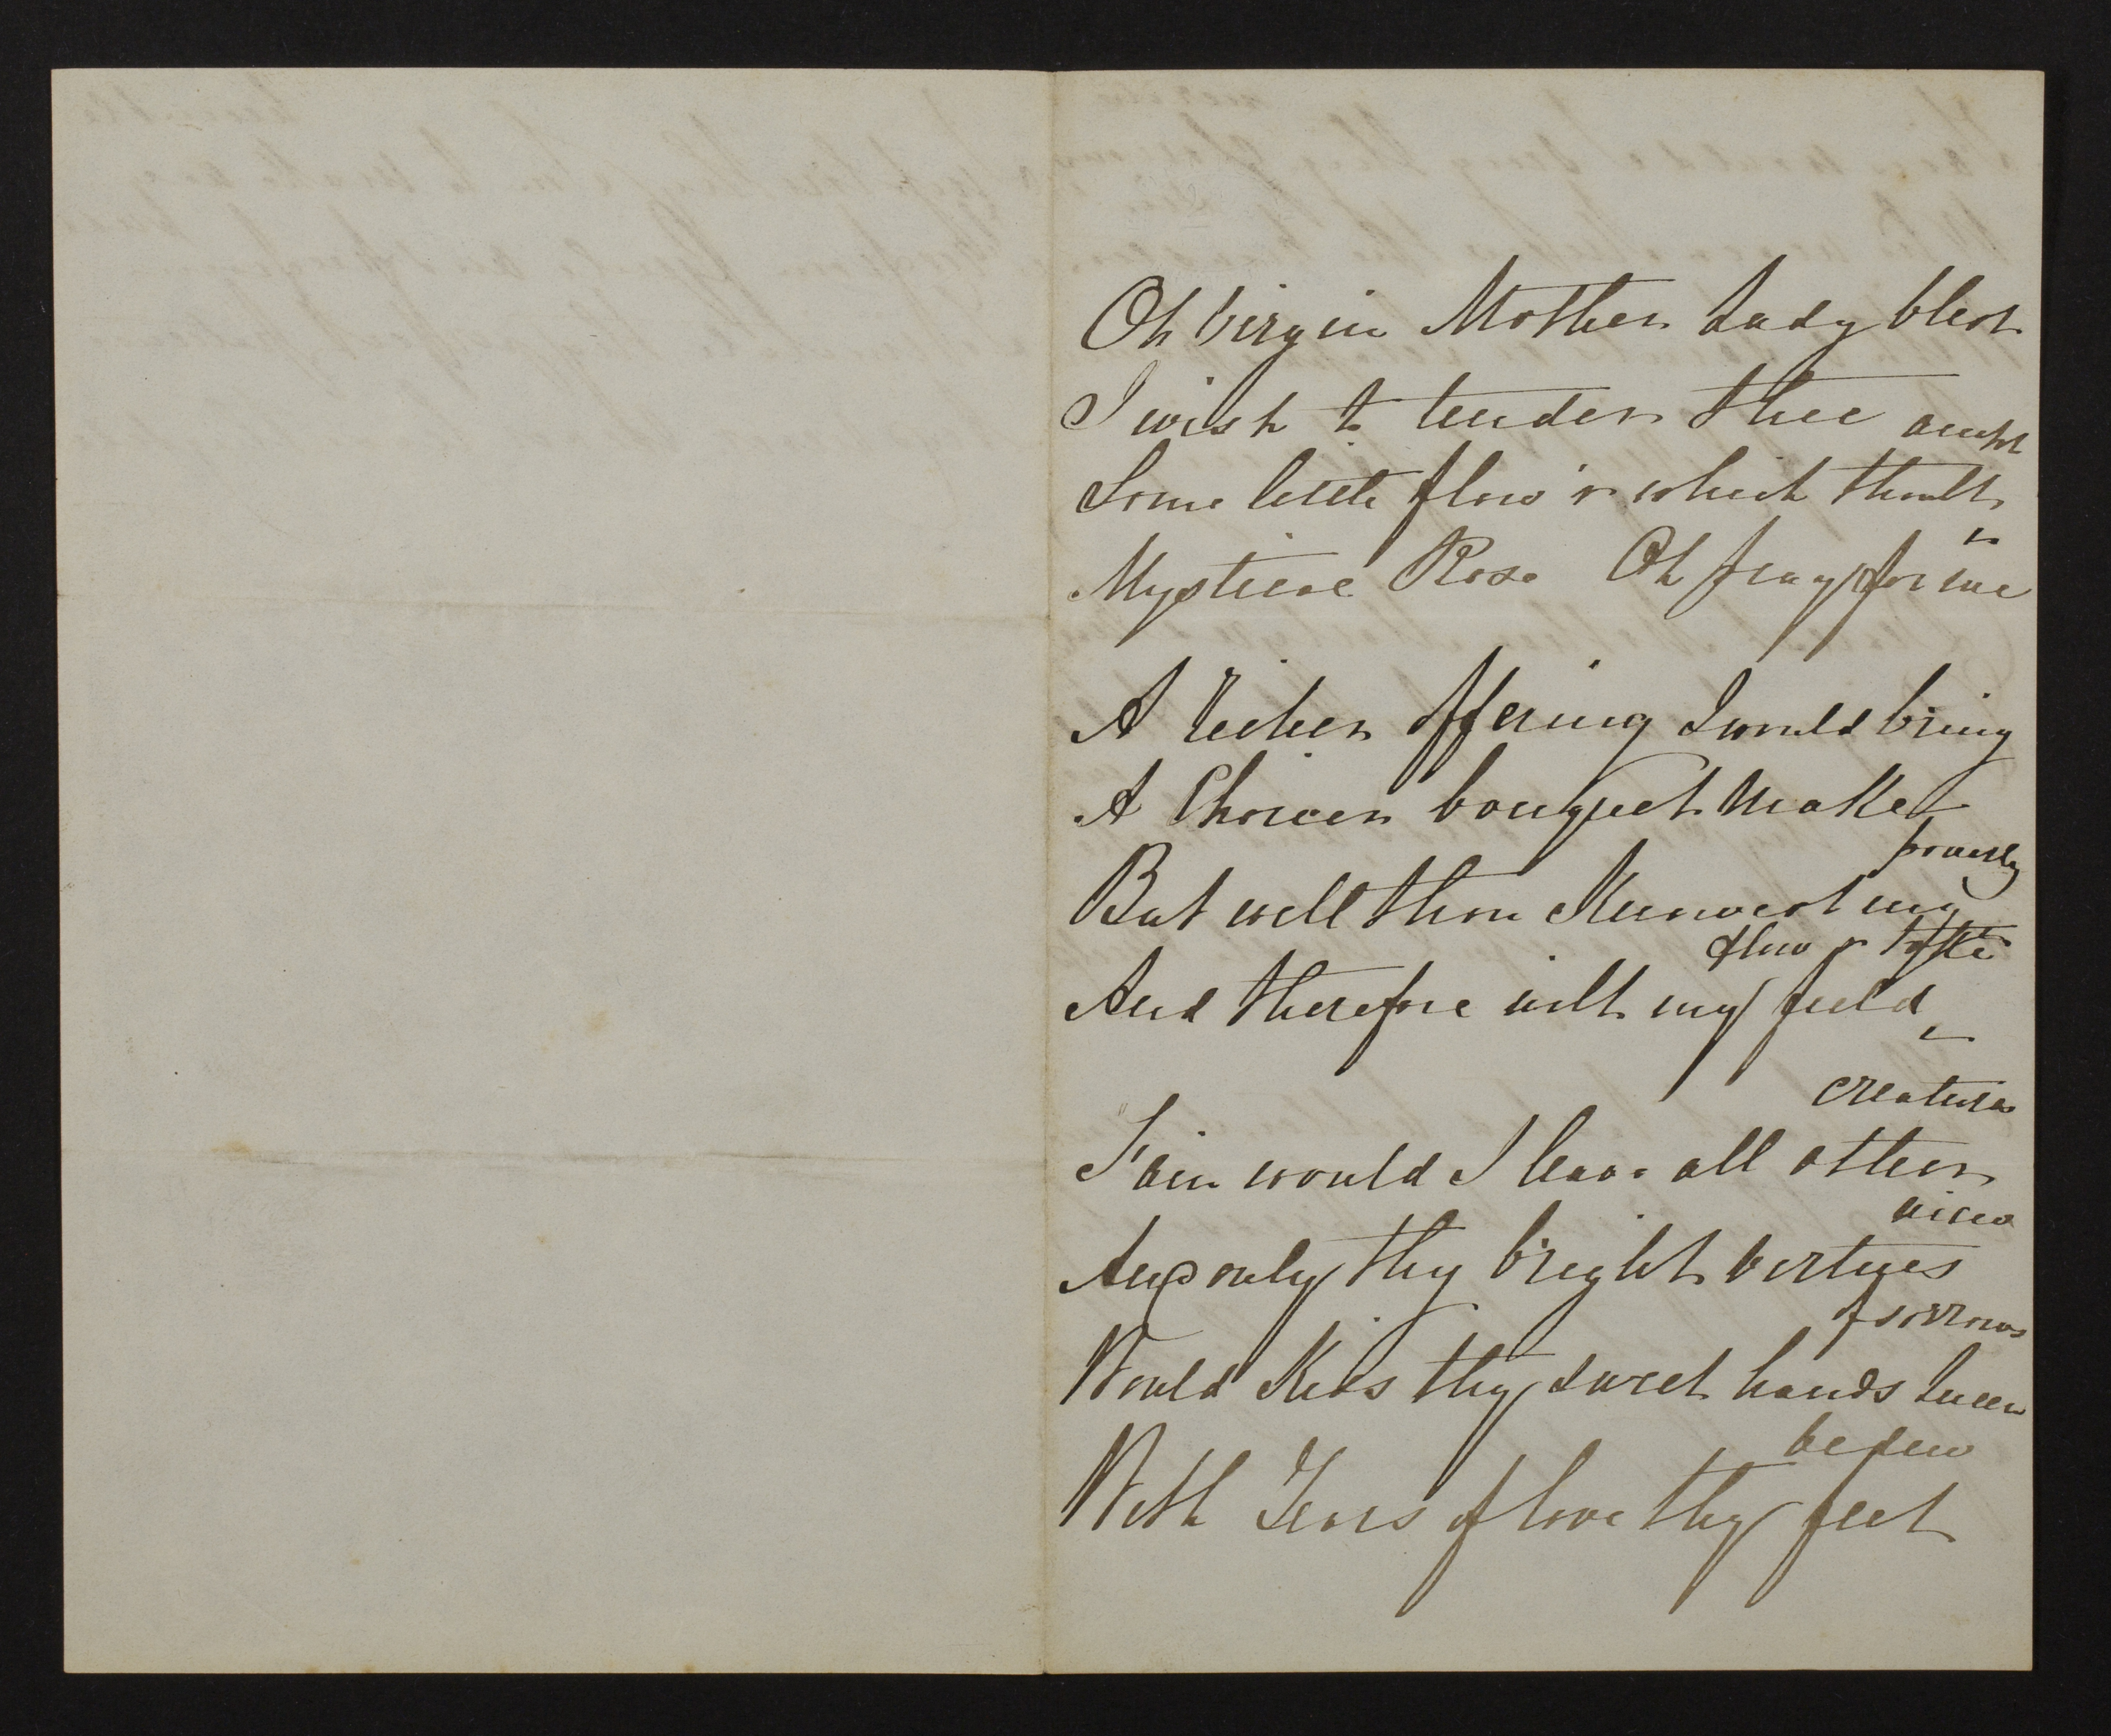 Oh Virgin Mother Lady blest
I wish to tender thee
Some little flow'r which thoult
Mystical Rose Oh pray for me
A richer offering I would bring
A Choicer bouquet make
poverty
But well thou Knowest my
flow'r take
And therefore wilt my field
creatures
Fain would I leave all other
view
And only thy bright virtues
of sorrows
Would Kiss thy sweet hands Queen
bedew
With Tears of love thy feet